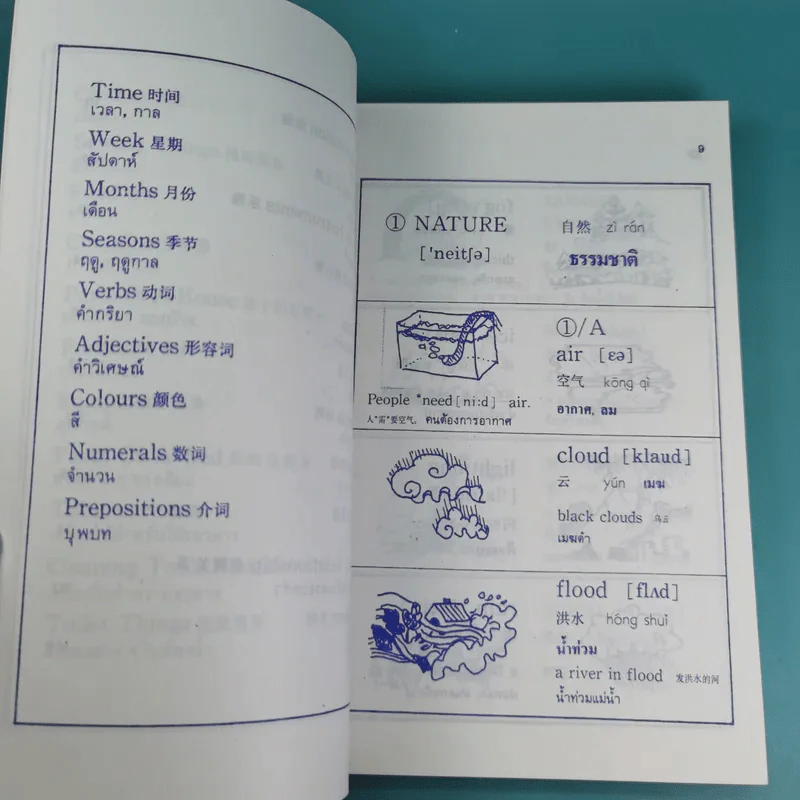 Time 时间
เวลา, กาล
Week 星期
สัปดาห์
Months 月份
เดือน
Seasons 季节
ฤดู, ฤดูกาล
Verbs 动词
คำกริยา
Adjectives 形容词
คำวิเศษณ์
Colours 颜色
สี
Numerals 数词
จำนวน
Prepositions 介词
บุพบท
9
① NATURE 自然 zì rán
['neitʃə] ธรรมชาติ
①/A
air [ɛə]
空气 kōng qì
อากาศ, ลม
People *need [ni:d] air.
人"需"要空气. คนต้องการอากาศ
cloud [klaud]
云 yún เมฆ
black clouds 乌云
เมฆดำ
flood [flʌd]
洪水 hóng shuǐ
น้ำท่วม
a river in flood 发洪水的河
น้ำท่วมแม่น้ำ